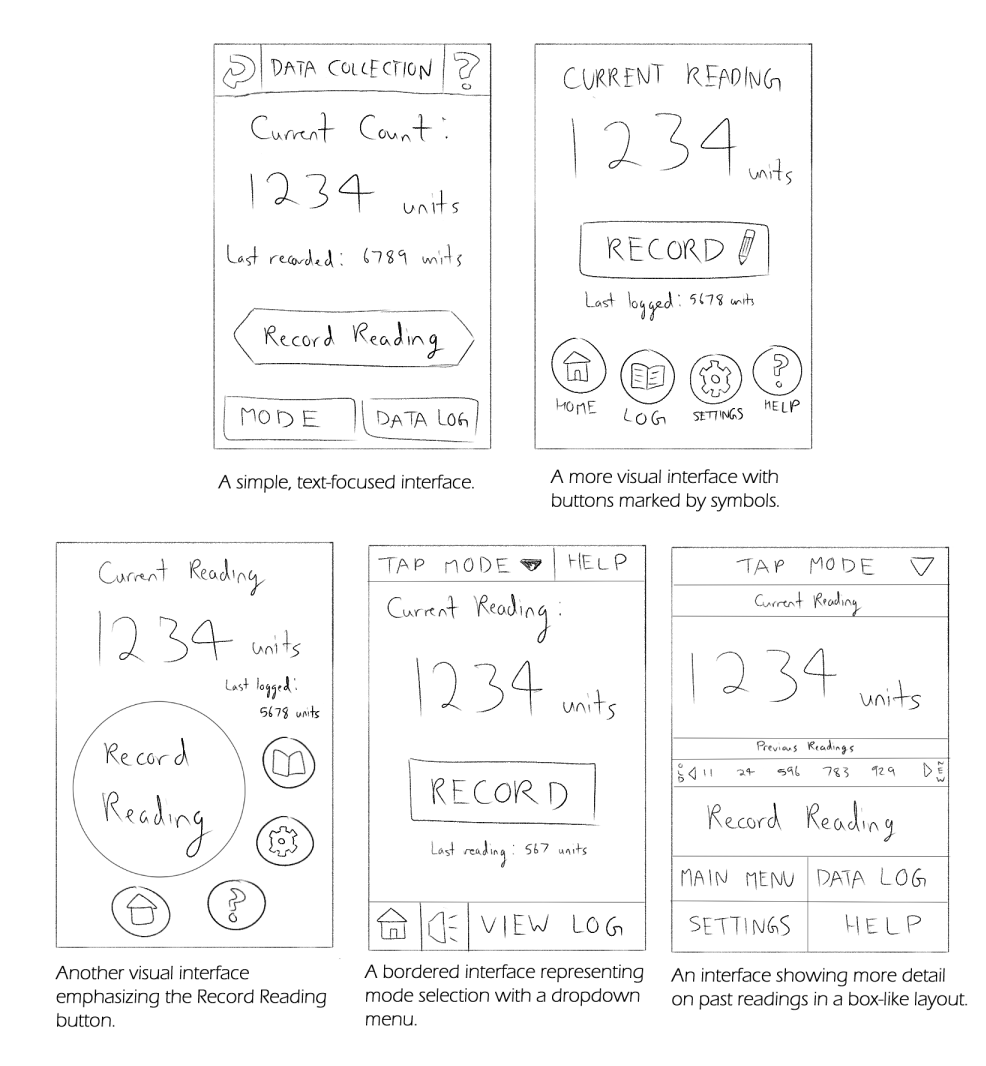 DATA COLLECTION ?
Current Count:
1234 units
Last recorded: 6789 units
Record Reading
MODE DATA LOG
A simple, text-focused interface.
CURRENT READING
1234 units
RECORD
Last logged: 5678 units
?
HOME LOG SETTINGS HELP
A more visual interface with
buttons marked by symbols.
Current Reading
1234 units
Last logged:
5678 units
Record
Reading
?
Another visual interface
emphasizing the Record Reading
button.
TAP MODE HELP
Current Reading:
1234 units
RECORD
Last reading: 567 units
VIEW LOG
A bordered interface representing
mode selection with a dropdown
menu.
TAP MODE
Current Reading
1234 units
Previous Readings
OLD 11 24 596 783 929 NEW
Record Reading
MAIN MENU DATA LOG
SETTINGS HELP
An interface showing more detail
on past readings in a box-like layout.